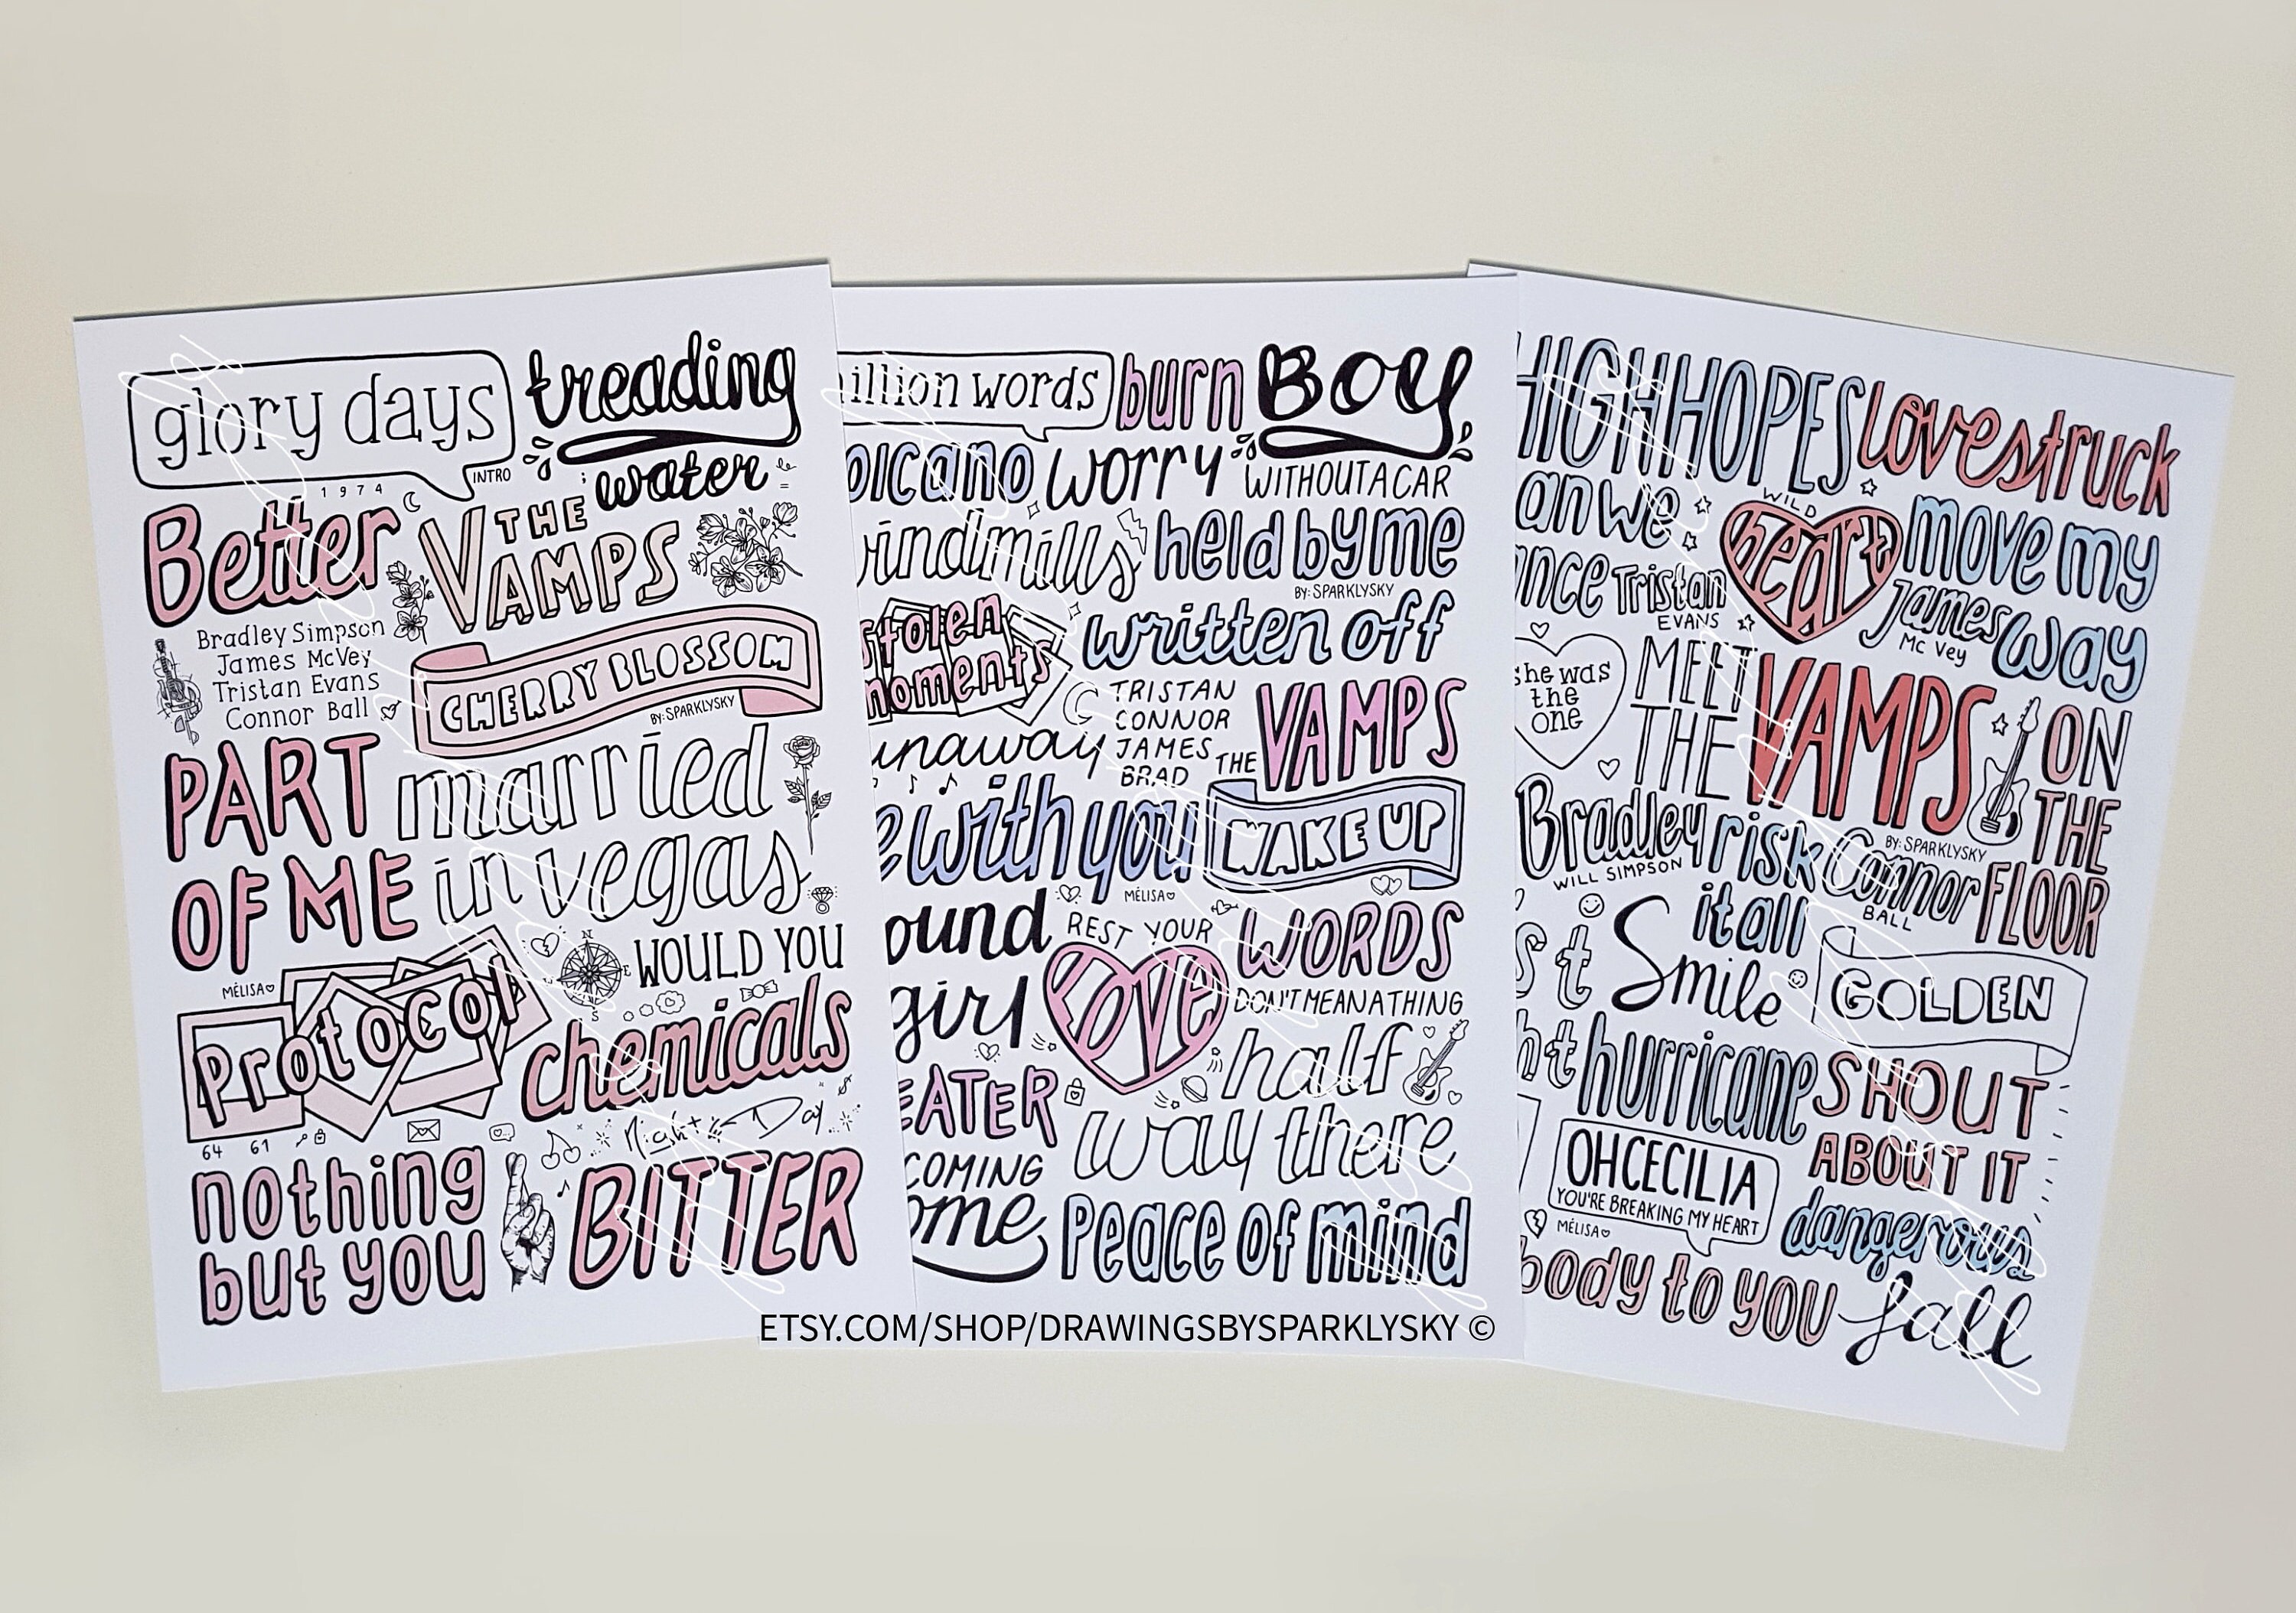 glory days
INTRO
treading
water
1974
Better
THE
VAMPS
Bradley Simpson
James McVey
Tristan Evans
Connor Ball
CHERRY BLOSSOM
BY: SPARKLYSKY
PART
OF ME
married
in vegas
MÉLISA
Protocol
WOULD YOU
N
E
S
chemicals
64 61
Night & Day
nothing
but you
BITTER
illion words
burn
BOY
olcano
worry
WITHOUT A CAR
indmills
held by me
BY: SPARKLYSKY
stolen
moments
written off
TRISTAN
CONNOR
JAMES
BRAD
THE
VAMPS
unaway
e with you
WAKE UP
MÉLISA
ound
girl
REST YOUR
LOVE
WORDS
DON'T MEAN A THING
EATER
half
way there
COMING
ome
Peace of mind
HIGH HOPES
lovestruck
an we
ance
WILD
heart
move my
way
Tristan
EVANS
James
MC Vey
she was
the
one
MEET
THE
VAMPS
ON
THE
FLOOR
BY: SPARKLYSKY
Bradley
WILL SIMPSON
risk
it all
Connor
BALL
st
Smile
GOLDEN
ht
hurricane
SHOUT
ABOUT IT
OH CECILIA
YOU'RE BREAKING MY HEART
MÉLISA
dangerous
body to you
fall
ETSY.COM/SHOP/DRAWINGSBYSPARKLYSKY ©